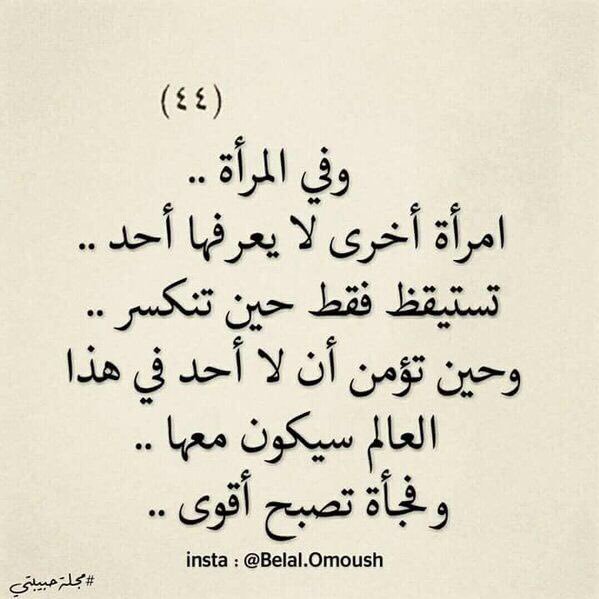 (٤٤)
وفي المرأة ..
امرأة أخرى لا يعرفها أحد ..
تستيقظ فقط حين تنكسر ..
وحين تؤمن أن لا أحد في هذا
العالم سيكون معها ..
وفجأة تصبح أقوى ..
insta : @Belal.Omoush
#مجلة حبيبتي